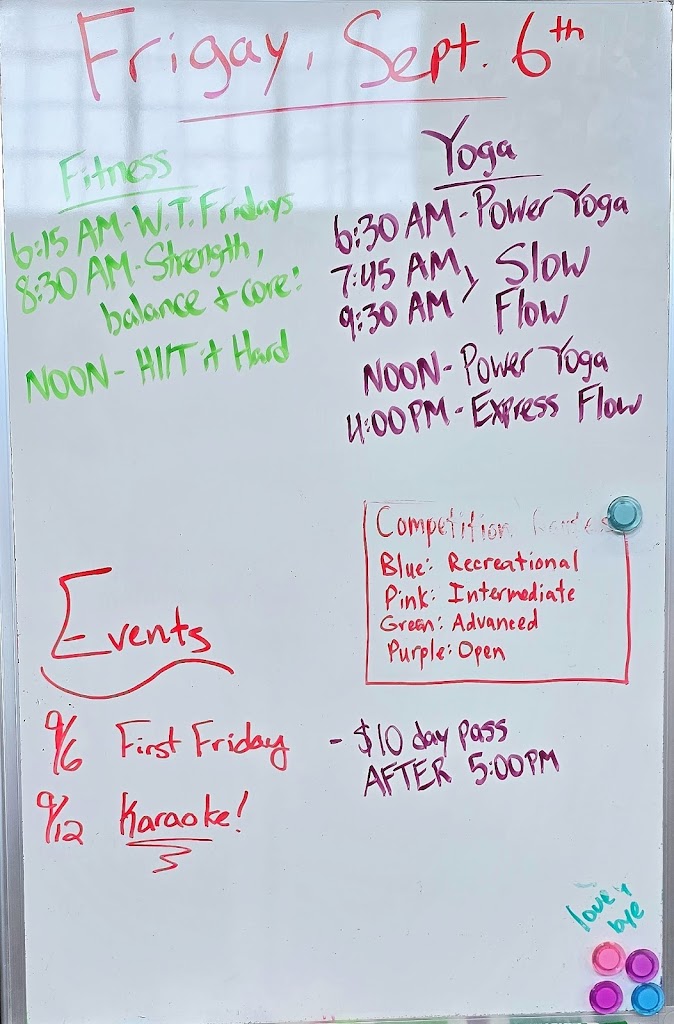 Frigay, Sept. 6th
Fitness
6:15 AM - W.T. Fridays
8:30 AM - Strength,
balance + core!
NOON - HIIT it Hard
Yoga
6:30 AM - Power Yoga
7:45 AM, Slow
9:30 AM Flow
NOON - Power Yoga
4:00 PM - Express Flow
Competition
Blue: Recreational
Pink: Intermediate
Green: Advanced
Purple: Open
Events
9/6 First Friday - $10 day pass
AFTER 5:00PM
9/12 Karaoke!
love y
bye